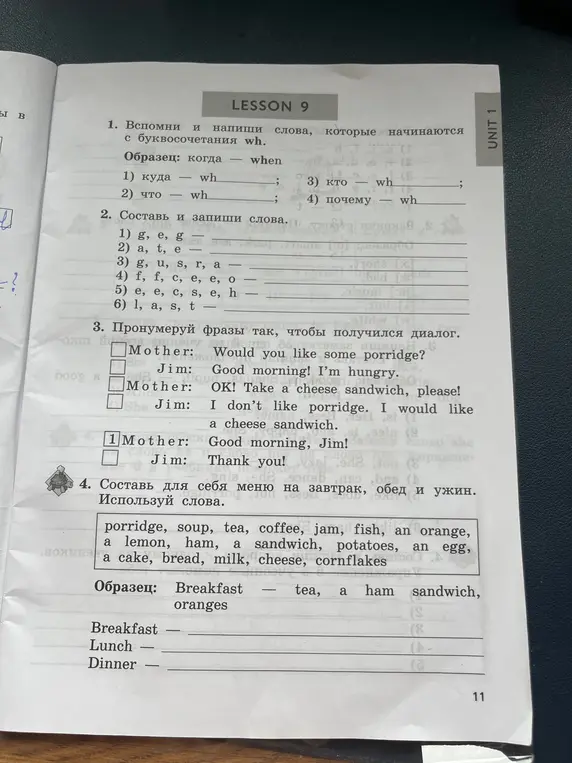 LESSON 9
UNIT 1
1. Вспомни и напиши слова, которые начинаются
с буквосочетания wh.
Образец: когда — when
1) куда — wh________; 3) кто — wh________;
2) что — wh________; 4) почему — wh________
2. Составь и запиши слова.
1) g, e, g —
2) a, t, e —
3) g, u, s, r, a —
4) f, f, c, e, e, o —
5) e, e, c, s, e, h —
6) l, a, s, t —
3. Пронумеруй фразы так, чтобы получился диалог.
Mother: Would you like some porridge?
Jim: Good morning! I'm hungry.
Mother: OK! Take a cheese sandwich, please!
Jim: I don't like porridge. I would like
a cheese sandwich.
1 Mother: Good morning, Jim!
Jim: Thank you!
4. Составь для себя меню на завтрак, обед и ужин.
Используй слова.
porridge, soup, tea, coffee, jam, fish, an orange,
a lemon, ham, a sandwich, potatoes, an egg,
a cake, bread, milk, cheese, cornflakes
Образец: Breakfast — tea, a ham sandwich,
oranges
Breakfast —
Lunch —
Dinner —
11